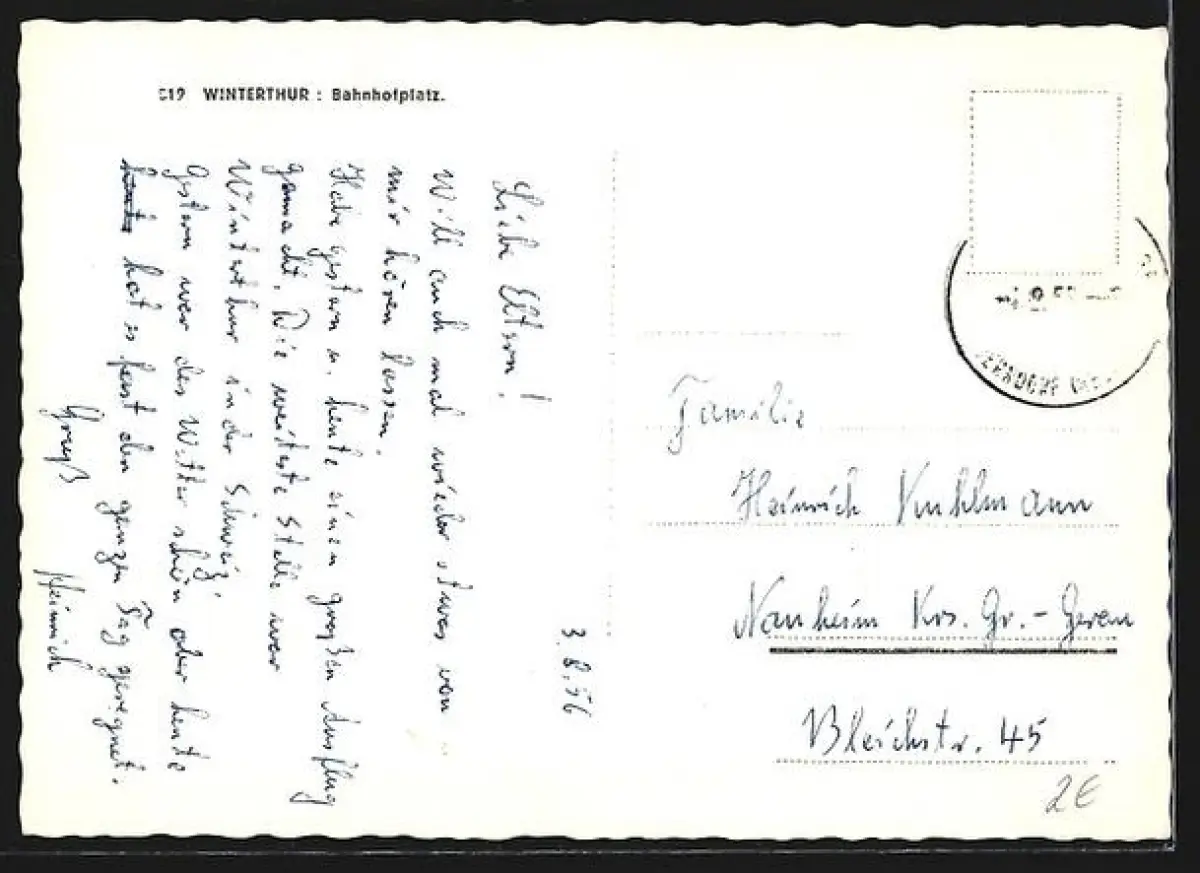 C19 WINTERTHUR : Bahnhofplatz.
3.8.56
Liebe Eltern!
Will auch mal wieder etwas von
mir hören lassen.
Habe gestern u. heute einen großen Ausflug
gemacht. Die weiteste Stelle war
Winterthur in der Schweiz.
Gestern war das Wetter schön aber heute
hat es fast den ganzen Tag geregnet.
Gruß
Heinrich
Familie
Heinrich Kuhlmann
Nauheim Krs. Gr.-Gerau
Bleichstr. 45
2€